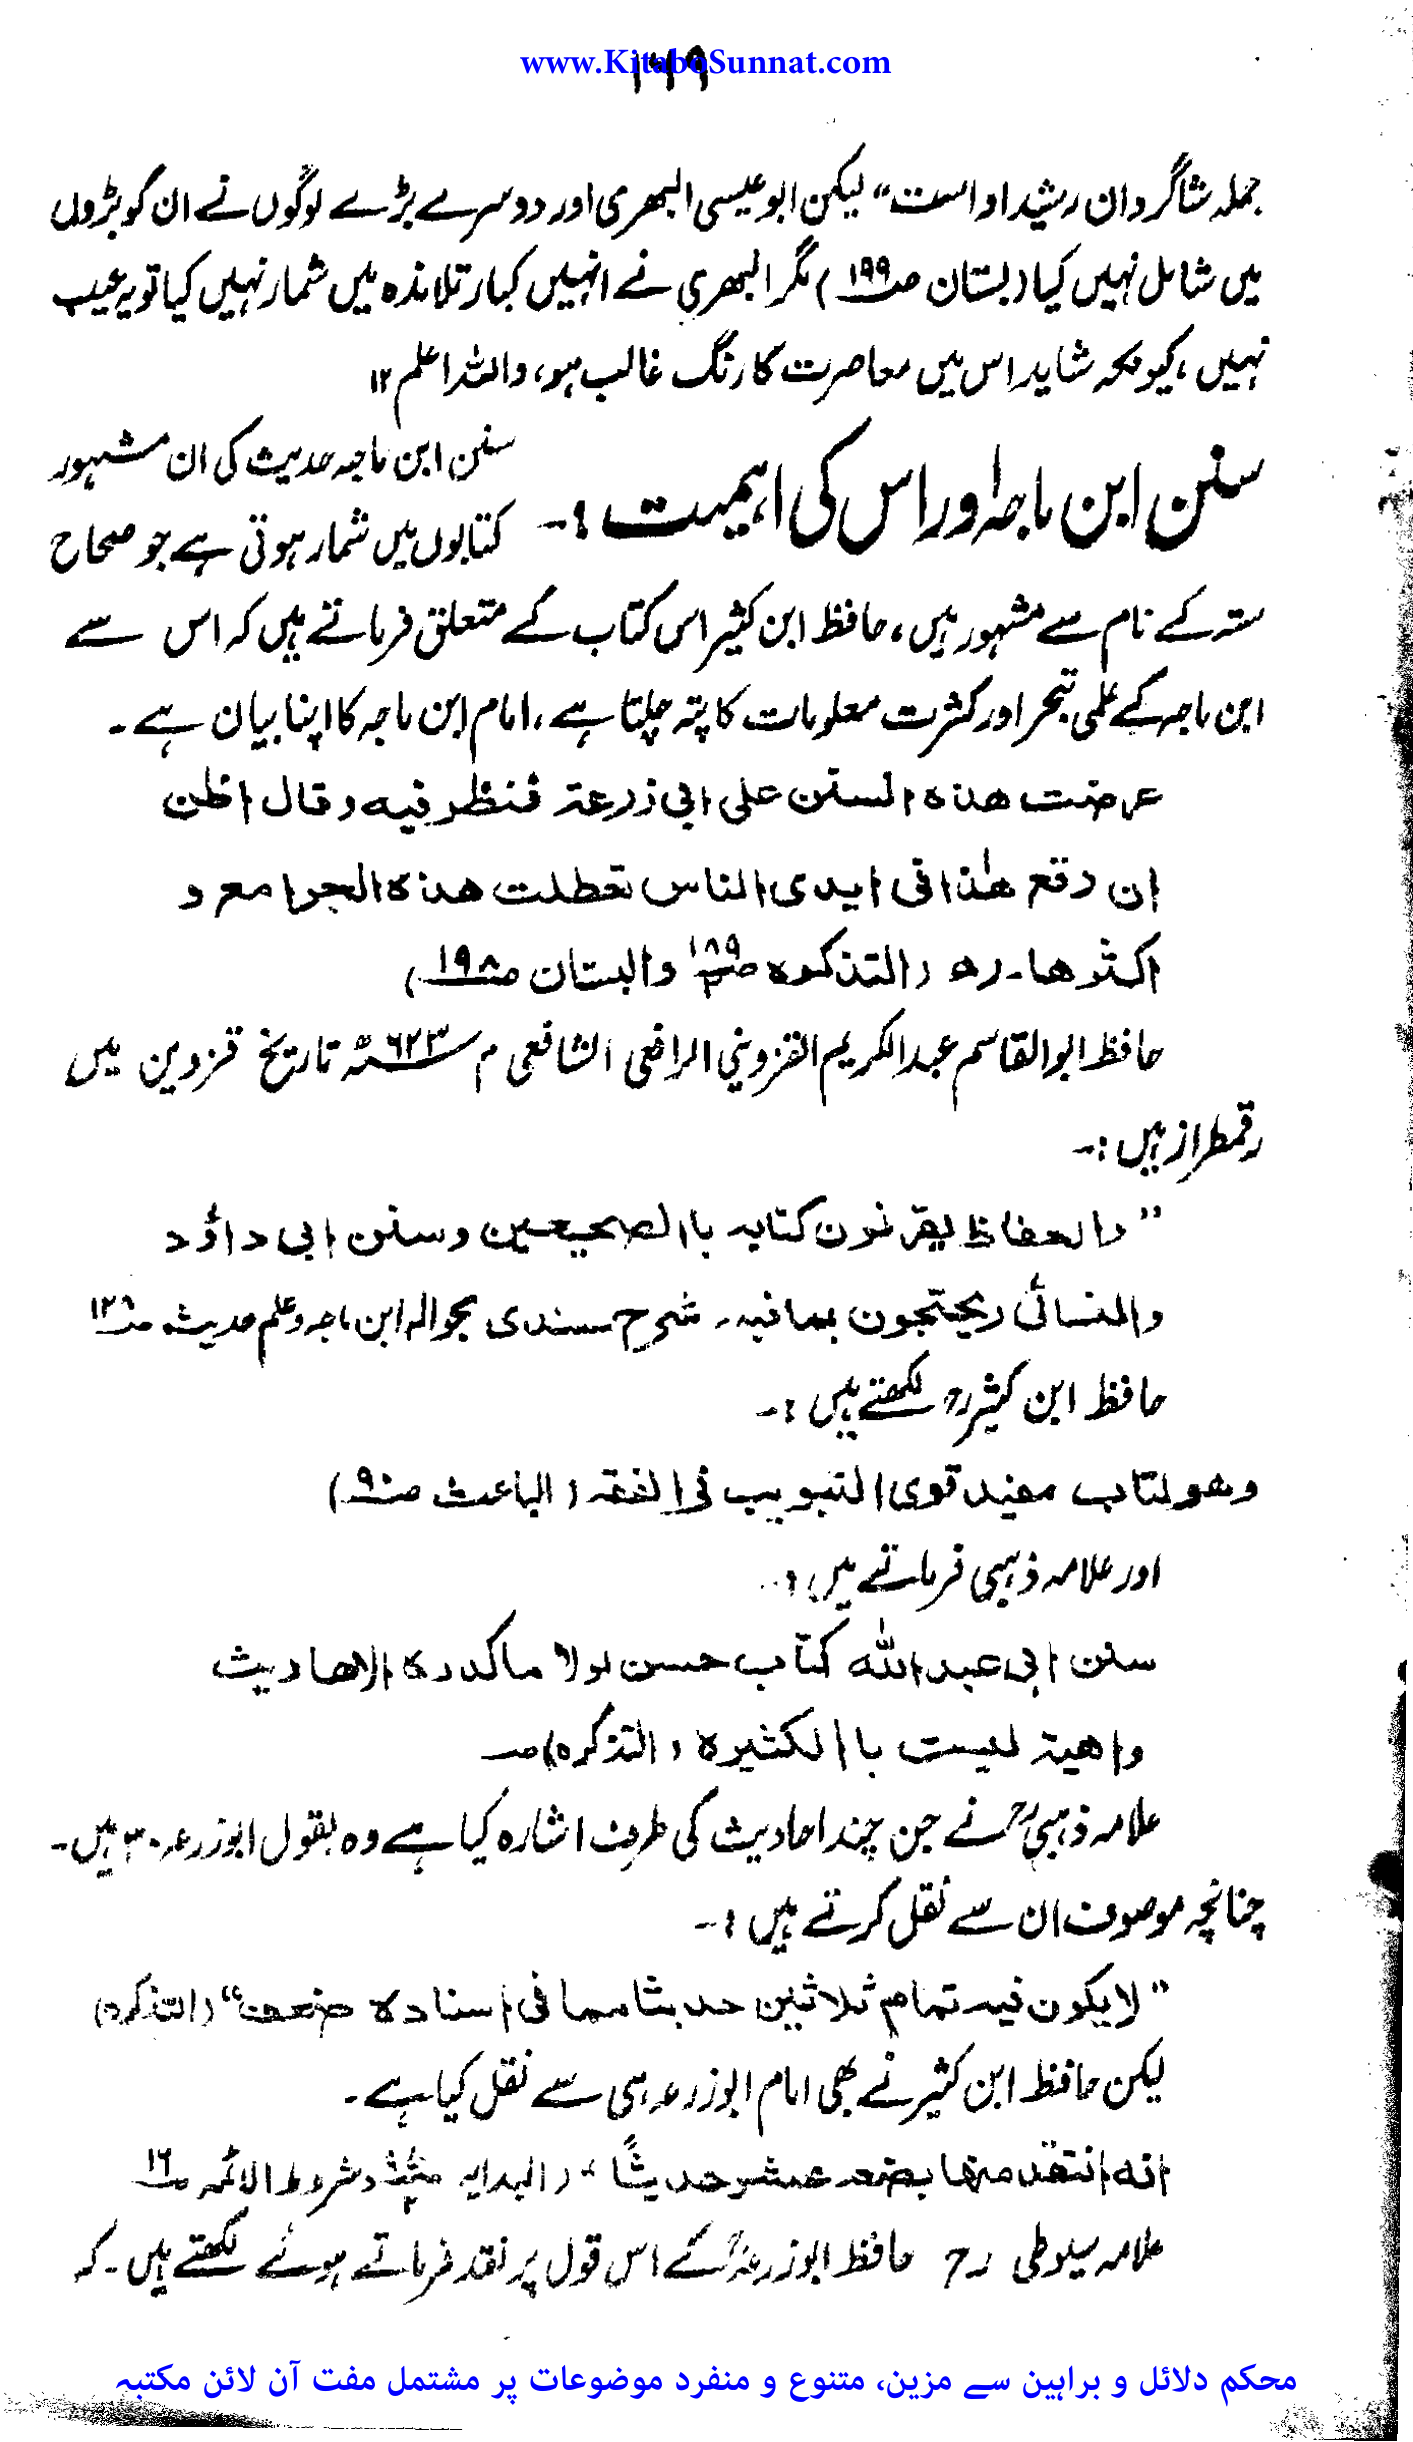 www.KitaboSunnat.com
۱۶۹
جملہ شاگردان رشید او است“ لیکن ابو عیسی البھری اور دوسرے بڑے لوگوں نے ان کو بڑوں
میں شامل نہیں کیا (بستان ص۱۹۹) مگر البھری نے انہیں کبار تلامذہ میں شمار نہیں کیا تو یہ عیب
نہیں، کیونکہ شاید اس میں معاصرت کا رنگ غالب ہو، واللہ اعلم ۱۲
سنن ابن ماجہ اور اس کی اہمیت :-
سنن ابن ماجہ حدیث کی ان مشہور
کتابوں میں شمار ہوتی ہے جو صحاح
ستہ کے نام سے مشہور ہیں، حافظ ابن کثیر اس کتاب کے متعلق فرماتے ہیں کہ اس سے
ابن ماجہ کے علمی تبحر اور کثرت معلومات کا پتہ چلتا ہے، امام ابن ماجہ کا اپنا بیان ہے۔
عرضت هذه السنن على ابی زرعة فنظر فیه وقال اظن
ان وقع هٰذا فی ایدی الناس تعطلت هذه الجوامع و
اکثرها۔ رہ (التذکرہ ص۱۸۹ ۲ والبستان ص۱۹۸)
حافظ ابو القاسم عبدالکریم القزوینی الرافعی الشافعی م ۶۲۳ھ تاریخ قزوین میں
رقمطراز ہیں :-
”والحفاظ یقرنون کتابه باالصحیحین وسنن ابی داؤد
والنسائی ویحتجون بمافیه۔ شرح سندی بحوالہ ابن ماجہ و علم حدیث ص۱۲۶
حافظ ابن کثیرؒ لکھتے ہیں :-
وهو لتاب مفید قوی التبویب فی الفقه (الباعث ص۹۰)
اور علامہ ذہبی فرماتے ہیں :-
سنن ابی عبداللّٰہ کتاب حسن لولا ماکدرہ الاحادیث
واهیة لیست باالکثیرة (التذکرہ) ص
علامہ ذہبیؒ نے جن چند احادیث کی طرف اشارہ کیا ہے وہ بقول ابوزرعہ ۳۰ ہیں۔
چنانچہ موصوف ان سے نقل کرتے ہیں :-
”لایکون فیه تمام ثلاثین حدیثا مما فی اسنادہ ضعف“ (التذکرہ)
لیکن حافظ ابن کثیر نے بھی امام ابوزرعہ ہی سے نقل کیا ہے۔
انه انتقد منها بضعه عشر حدیثًا“ (البدایہ و شروط الائمہ ص۱۶
علامہ سیوطی رح حافظ ابوزرعہؒ کے اس قول پر نقد فرماتے ہوئے لکھتے ہیں۔ کہ
محکم دلائل و براہین سے مزین، متنوع و منفرد موضوعات پر مشتمل مفت آن لائن مکتبہ